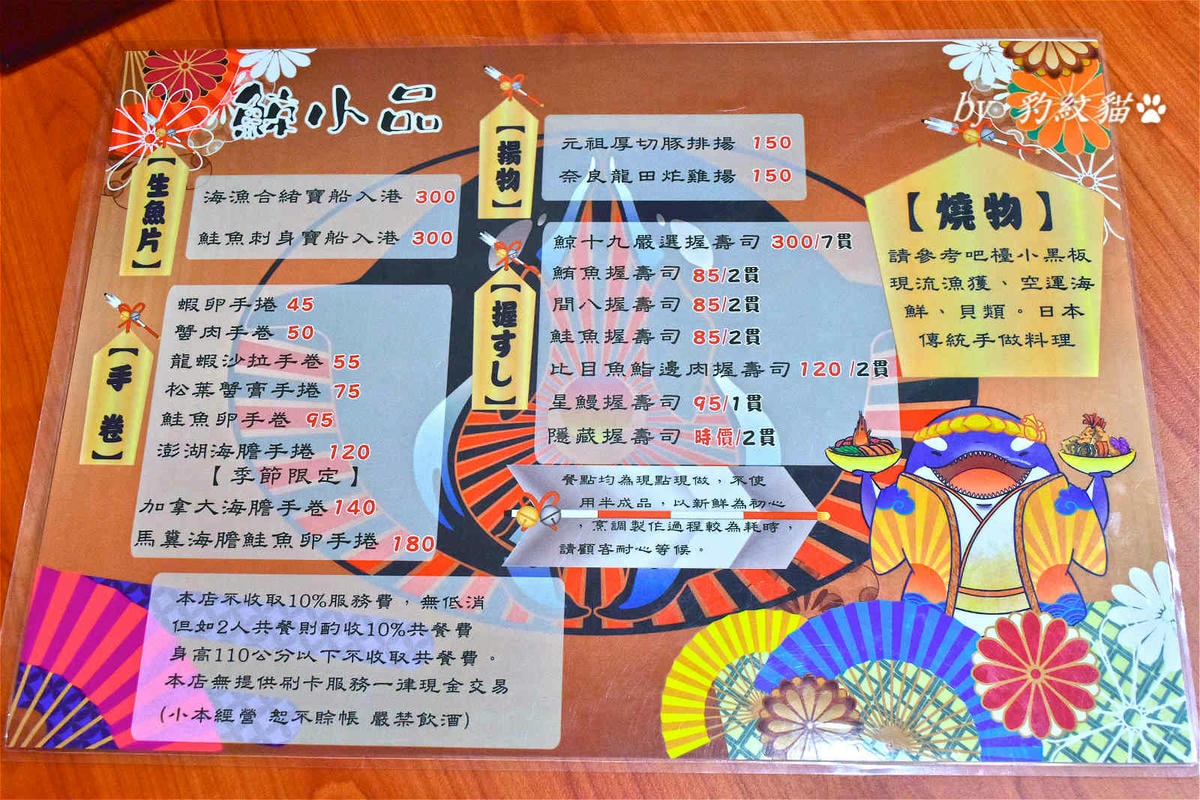 鯨小品
【生魚片】
海漁合緒寶船入港 300
鮭魚刺身寶船入港 300
【手卷】
蝦卵手捲 45
蟹肉手卷 50
龍蝦沙拉手卷 55
松葉蟹膏手捲 75
鮭魚卵手卷 95
澎湖海膽手捲 120
【季節限定】
加拿大海膽手卷 140
馬糞海膽鮭魚卵手捲 180
【揚物】
元祖厚切豚排揚 150
奈良龍田炸雞揚 150
【握すし】
鯨十九嚴選握壽司 300/7貫
鮪魚握壽司 85/2貫
間八握壽司 85/2貫
鮭魚握壽司 85/2貫
比目魚鮨邊肉握壽司 120 /2貫
星鰻握壽司 95/1貫
隱藏握壽司 時價/2貫
餐點均為現點現做，不使
用半成品，以新鮮為初心
，烹調製作過程較為耗時，
請顧客耐心等候。
by 豹紋貓
【燒物】
請參考吧檯小黑板
現流漁獲、空運海
鮮、貝類。日本
傳統手做料理
本店不收取10%服務費，無低消
但如2人共餐則酌收10%共餐費
身高110公分以下不收取共餐費。
本店無提供刷卡服務一律現金交易
(小本經營 恕不賒帳 嚴禁飲酒)